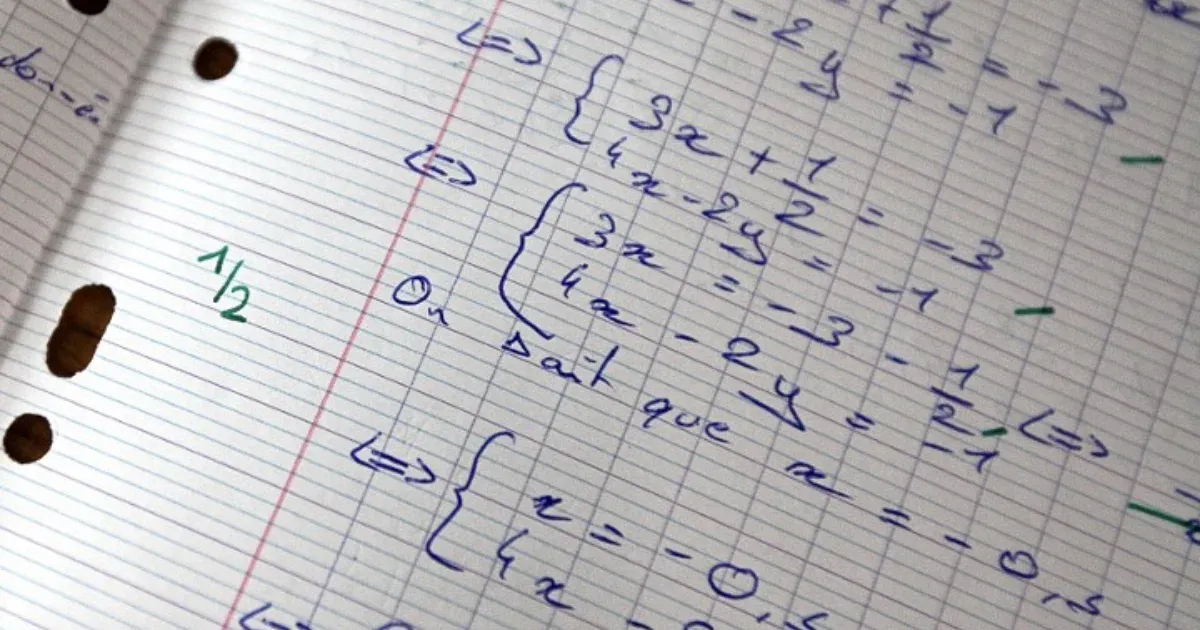 + 1/2 = -3
- 2y = -1
<=> { 3x + 1/2 = -3
4x - 2y = -1
<=> { 3x = -3 - 1/2 <=>
4x - 2y = -1
1/2
On sait que x = -0,5
<=> { x = -0,5
4x -
<=>